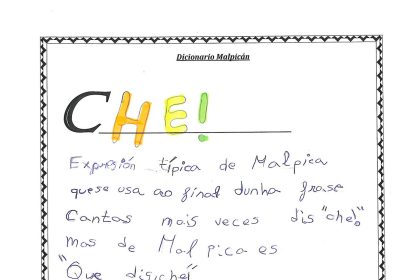 Dicionario Malpicán
CHE!
Expresión típica de Malpica
quese usa ao final dunha frase
Cantas mais veces dis "che!"
mas de Malpica es
"Que disiche!